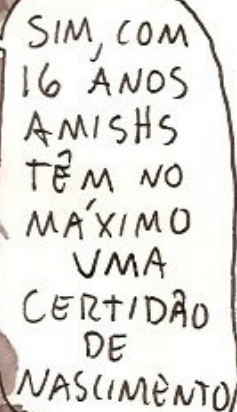 SIM, COM
16 ANOS
AMISHS
TÊM NO
MÁXIMO
UMA
CERTIDÃO
DE
NASCIMENTO